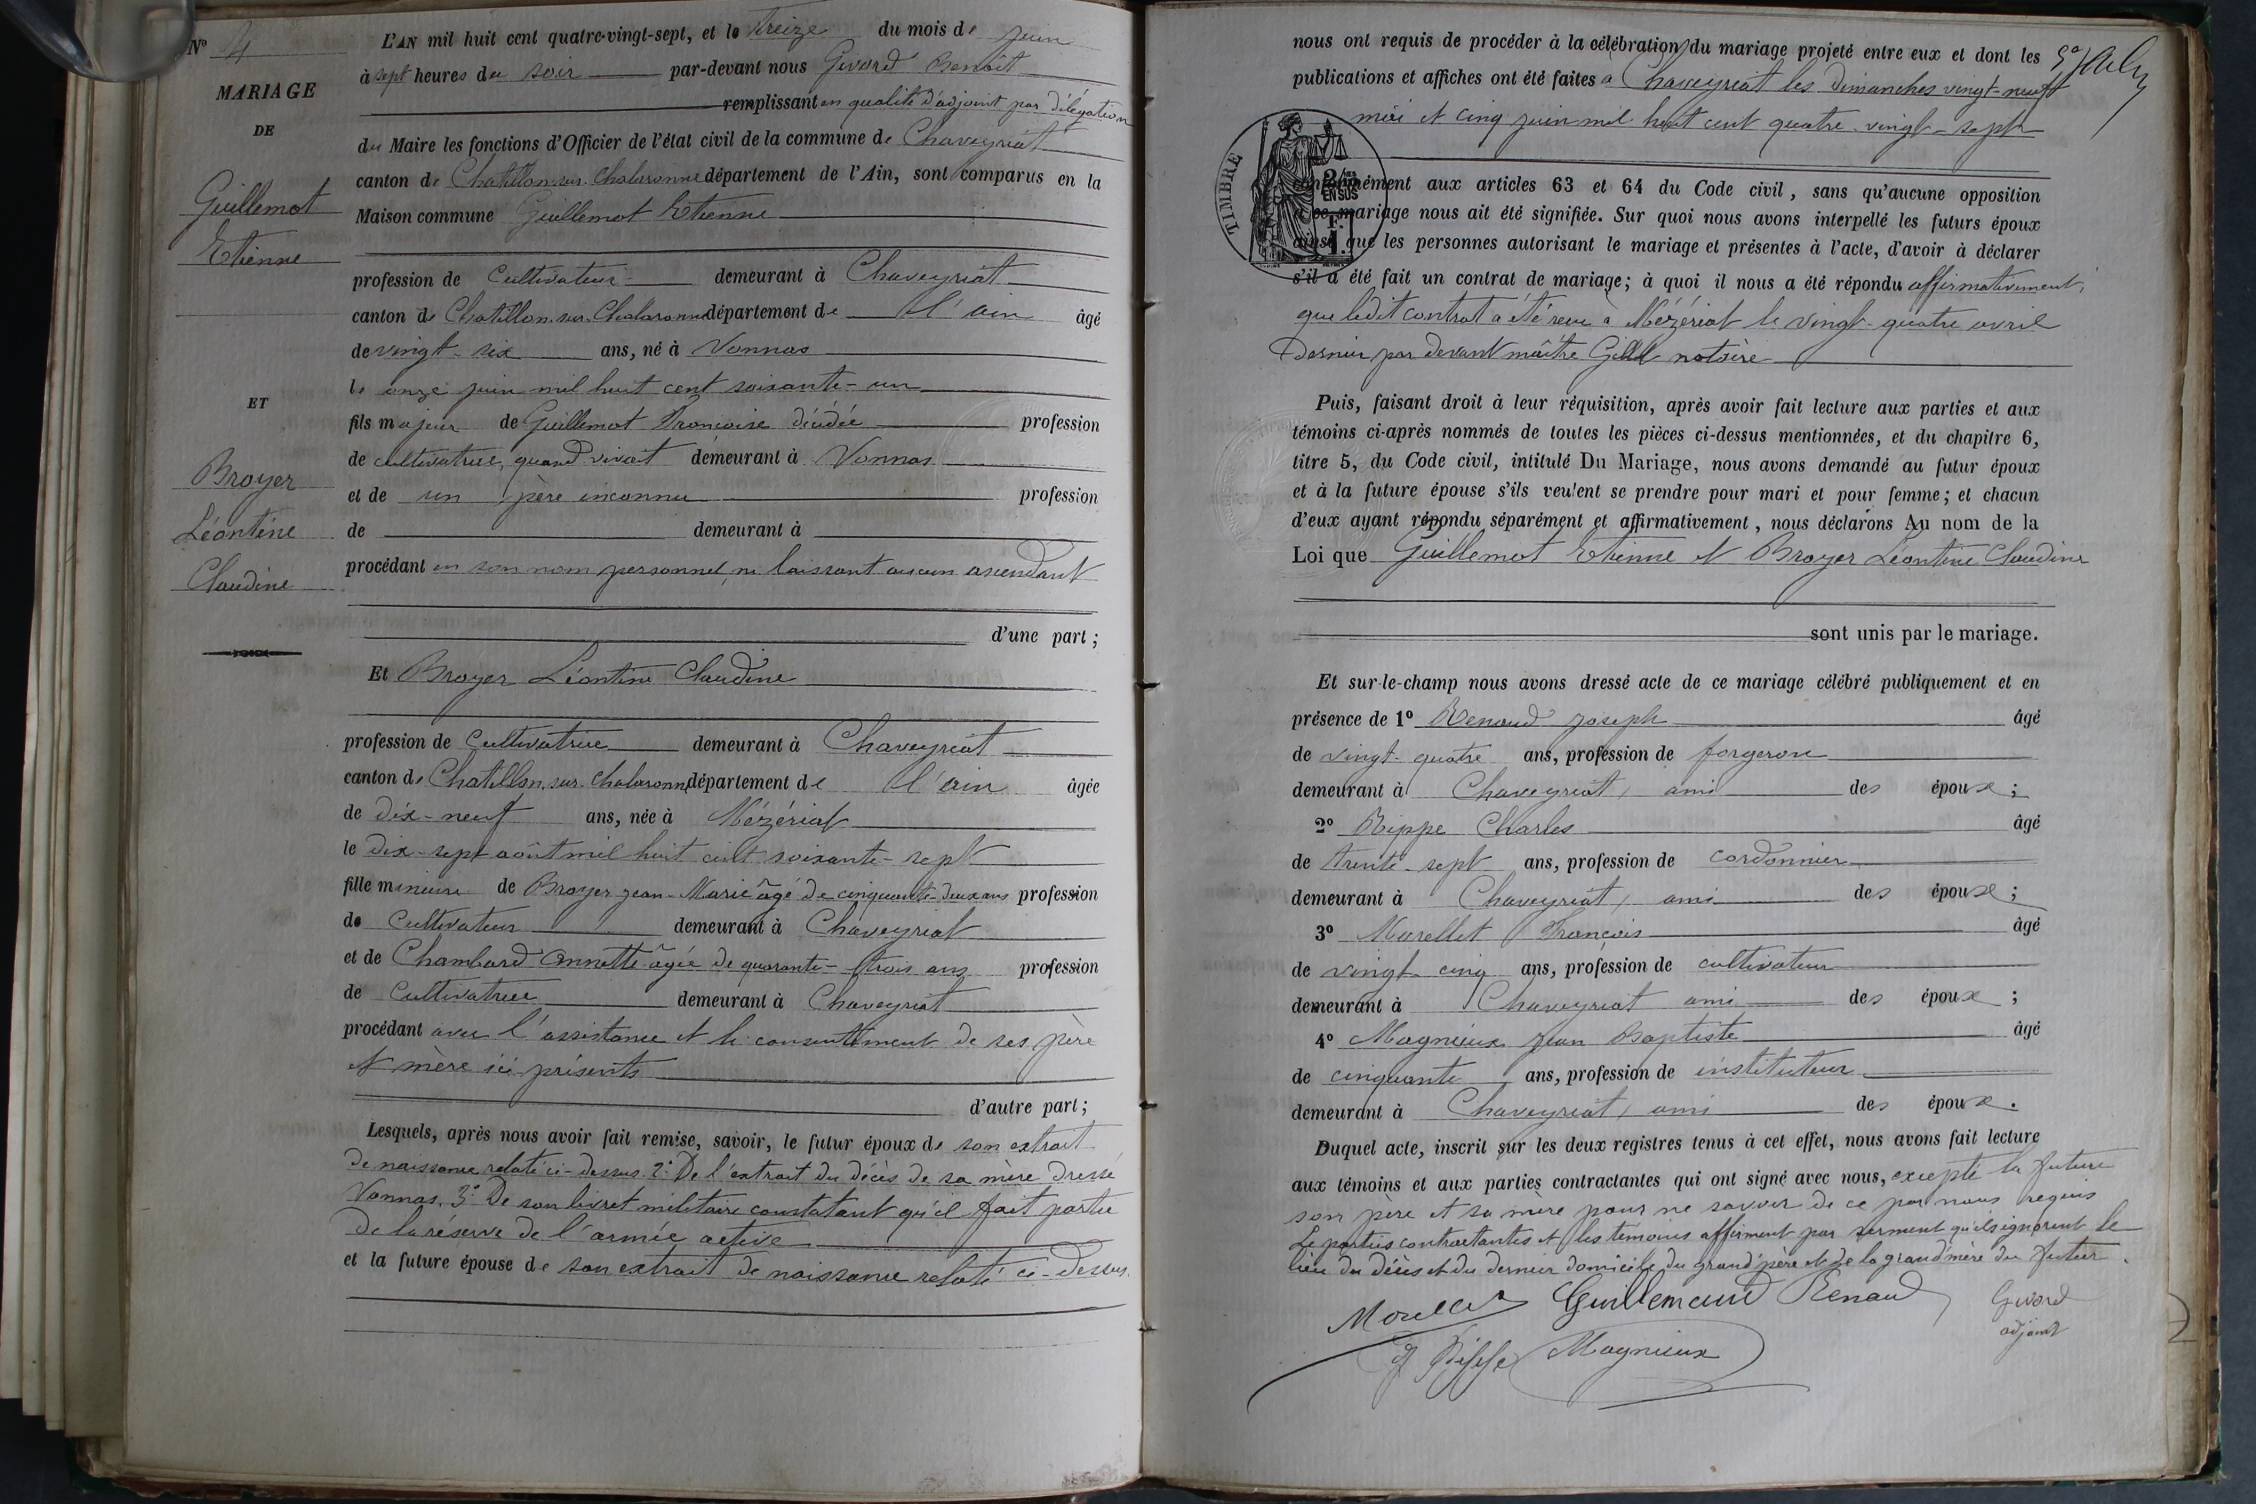 N° 4
MARIAGE
DE
Guillemot
Etienne
ET
Broyer
Léontine
Claudine
L'AN mil huit cent quatre-vingt-sept, et le treize du mois de juin
à sept heures du soir par-devant nous Givord Benoit
remplissant en qualité d'adjoint par délégation
du Maire les fonctions d'Officier de l'état civil de la commune de Chaveyriat
canton de Chatillon-sur-Chalaronne département de l'Ain, sont comparus en la
Maison commune Guillemot Etienne
profession de cultivateur demeurant à Chaveyriat
canton de Chatillon-sur-Chalaronne département de l'ain âgé
de vingt-six ans, né à Vonnas
le onze juin mil huit cent soixante-un
fils majeur de Guillemot Françoise décédée profession
de cultivatrice, quand vivait demeurant à Vonnas
et de un père inconnu profession
de demeurant à
procédant en son nom personnel, ne laissant aucun ascendant
d'une part ;
Et Broyer Léontine Claudine
profession de cultivatrice demeurant à Chaveyriat
canton de Chatillon-sur-Chalaronne département de l'ain âgée
de dix-neuf ans, née à Mézériat
le dix-sept août mil huit cent soixante-sept
fille mineure de Broyer Jean-Marie âgé de cinquante-deux ans profession
de cultivateur demeurant à Chaveyriat
et de Chambard Annette âgée de quarante-trois ans profession
de cultivatrice demeurant à Chaveyriat
procédant avec l'assistance et le consentement de ses père
et mère ici présents
d'autre part ;
Lesquels, après nous avoir fait remise, savoir, le futur époux de son extrait
de naissance relaté ci-dessus 2° De l'extrait du décès de sa mère dressé
Vonnas. 3° De son livret militaire constatant qu'il fait partie
de la réserve de l'armée active
et la future épouse de son extrait de naissance relaté ci-dessus.
nous ont requis de procéder à la célébration du mariage projeté entre eux et dont les
publications et affiches ont été faites à Chaveyriat les dimanches vingt-neuf
mai et cinq juin mil huit cent quatre-vingt-sept
TIMBRE
2/10es
EN SUS
1 F.
conformément aux articles 63 et 64 du Code civil, sans qu'aucune opposition
à ce mariage nous ait été signifiée. Sur quoi nous avons interpellé les futurs époux
ainsi que les personnes autorisant le mariage et présentes à l'acte, d'avoir à déclarer
s'il a été fait un contrat de mariage ; à quoi il nous a été répondu affirmativement,
que ledit contrat a été reçu à Mézériat le vingt-quatre avril
dernier par devant maître notaire
Puis, faisant droit à leur réquisition, après avoir fait lecture aux parties et aux
témoins ci-après nommés de toutes les pièces ci-dessus mentionnées, et du chapitre 6,
titre 5, du Code civil, intitulé Du Mariage, nous avons demandé au futur époux
et à la future épouse s'ils veulent se prendre pour mari et pour femme ; et chacun
d'eux ayant répondu séparément et affirmativement, nous déclarons Au nom de la
Loi que Guillemot Etienne et Broyer Léontine Claudine
sont unis par le mariage.
Et sur-le-champ nous avons dressé acte de ce mariage célébré publiquement et en
présence de 1° Renaud Joseph âgé
de vingt-quatre ans, profession de forgeron
demeurant à Chaveyriat, ami des époux ;
2° Rippe Charles âgé
de trente-sept ans, profession de cordonnier
demeurant à Chaveyriat, ami des époux ;
3° Morellet François âgé
de vingt cinq ans, profession de cultivateur
demeurant à Chaveyriat ami des époux ;
4° Magnieux Jean Baptiste âgé
de cinquante ans, profession de instituteur
demeurant à Chaveyriat, ami des époux.
Duquel acte, inscrit sur les deux registres tenus à cet effet, nous avons fait lecture
aux témoins et aux parties contractantes qui ont signé avec nous, excepté la future
son père et sa mère pour ne savoir de ce par nous requis
Le parties contractantes et les témoins affirment par serment qu'ils ignorent le
lieu du décès et du dernier domicile du grand'père et de la grand'mère du futur.
Morellet Guillemaud Renaud Givord
adjoint
Rippe Magnieux